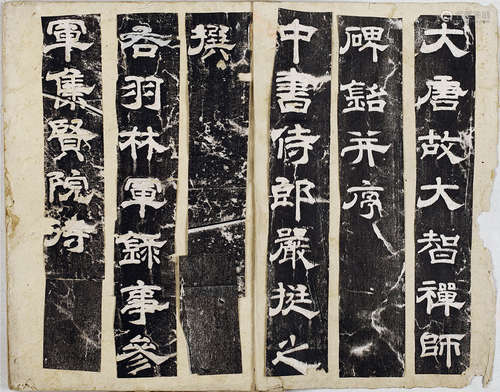 大唐故大智禪師
碑銘并序
中書侍郎嚴挺之
撰
右羽林軍錄事參
軍集賢院待